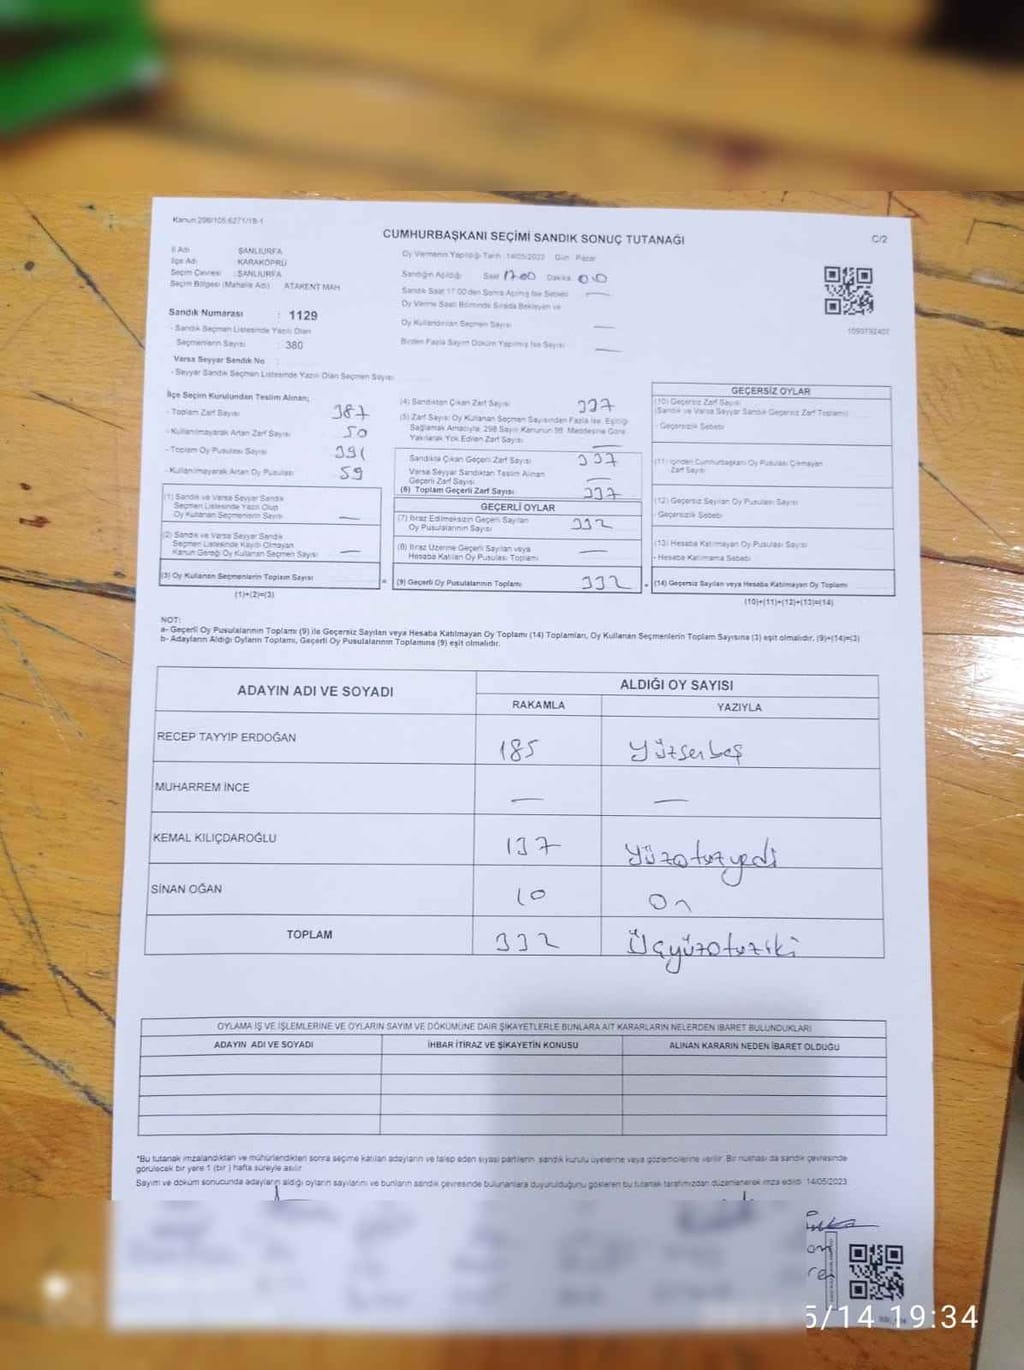 Kanun 298/105 6271/18-1
CUMHURBAŞKANI SEÇİMİ SANDIK SONUÇ TUTANAĞI
C/2
İl Adı : ŞANLIURFA
İlçe Adı : KARAKÖPRÜ
Seçim Çevresi : ŞANLIURFA
Seçim Bölgesi (Mahalle Adı) ATAKENT MAH
Oy Vermenin Yapıldığı Tarih : 14/05/2023 Gün : Pazar
Sandığın Açıldığı Saat 17:00 Dakika 00
Sandık Saat 17.00'den Sonra Açılmış İse Sebebi —
Oy Verme Saati Bitiminde Sırada Bekleyen ve
Oy Kullandırılan Seçmen Sayısı —
Birden Fazla Sayım Döküm Yapılmış İse Sayısı —
1093792407
Sandık Numarası : 1129
- Sandık Seçmen Listesinde Yazılı Olan
Seçmenlerin Sayısı : 380
Varsa Seyyar Sandık No
- Seyyar Sandık Seçmen Listesinde Yazılı Olan Seçmen Sayısı
İlçe Seçim Kurulundan Teslim Alınan;
- Toplam Zarf Sayısı 387
- Kullanılmayarak Artan Zarf Sayısı 50
- Toplam Oy Pusulası Sayısı 391
- Kullanılmayarak Artan Oy Pusulası 59
(1) Sandık ve Varsa Seyyar Sandık
Seçmen Listesinde Yazılı Olup
Oy Kullanan Seçmenlerin Sayısı —
(2) Sandık ve Varsa Seyyar Sandık
Seçmen Listesinde Kayıtlı Olmayan
Kanun Gereği Oy Kullanan Seçmen Sayısı —
(3) Oy Kullanan Seçmenlerin Toplam Sayısı
(1)+(2)=(3)
(4) Sandıktan Çıkan Zarf Sayısı 337
(5) Zarf Sayısı Oy Kullanan Seçmen Sayısından Fazla İse, Eşitliği
Sağlamak Amacıyla, 298 Sayılı Kanunun 98. Maddesine Göre
Yakılarak Yok Edilen Zarf Sayısı —
Sandıkta Çıkan Geçerli Zarf Sayısı 337
Varsa Seyyar Sandıktan Teslim Alınan
Geçerli Zarf Sayısı —
(6) Toplam Geçerli Zarf Sayısı 337
GEÇERLİ OYLAR
(7) İtiraz Edilmeksizin Geçerli Sayılan
Oy Pusulalarının Sayısı 332
(8) İtiraz Üzerine Geçerli Sayılan veya
Hesaba Katılan Oy Pusulası Toplamı —
(9) Geçerli Oy Pusulalarının Toplamı 332
GEÇERSİZ OYLAR
(10) Geçersiz Zarf Sayısı
(Sandık ve Varsa Seyyar Sandık Geçersiz Zarf Toplamı)
- Geçersizlik Sebebi
(11) İçinden Cumhurbaşkanı Oy Pusulası Çıkmayan
Zarf Sayısı
(12) Geçersiz Sayılan Oy Pusulası Sayısı
- Geçersizlik Sebebi
(13) Hesaba Katılmayan Oy Pusulası Sayısı
- Hesaba Katılmama Sebebi
(14) Geçersiz Sayılan veya Hesaba Katılmayan Oy Toplamı
(10)+(11)+(12)+(13)=(14)
NOT:
a- Geçerli Oy Pusulalarının Toplamı (9) ile Geçersiz Sayılan veya Hesaba Katılmayan Oy Toplamı (14) Toplamları, Oy Kullanan Seçmenlerin Toplam Sayısına (3) eşit olmalıdır, (9)+(14)=(3)
b- Adayların Aldığı Oyların Toplamı, Geçerli Oy Pusulalarının Toplamına (9) eşit olmalıdır.
ADAYIN ADI VE SOYADI
ALDIĞI OY SAYISI
RAKAMLA YAZIYLA
RECEP TAYYİP ERDOĞAN 185 Yüzserbeş
MUHARREM İNCE — —
KEMAL KILIÇDAROĞLU 137 Yüzotuzyedi
SİNAN OĞAN 10 On
TOPLAM 332 Üçyüzotuziki
OYLAMA İŞ VE İŞLEMLERİNE VE OYLARIN SAYIM VE DÖKÜMÜNE DAİR ŞİKAYETLERLE BUNLARA AİT KARARLARIN NELERDEN İBARET BULUNDUKLARI
ADAYIN ADI VE SOYADI İHBAR İTİRAZ VE ŞİKAYETİN KONUSU ALINAN KARARIN NEDEN İBARET OLDUĞU
*Bu tutanak imzalandıktan ve mühürlendikten sonra seçime katılan adayların ve talep eden siyasi partilerin sandık kurulu üyelerine veya gözlemcilerine verilir. Bir nüshası da sandık çevresinde
görülecek bir yere 1 (bir) hafta süreyle asılır
Sayım ve döküm sonucunda adayların aldığı oyların sayılarını ve bunların sandık çevresinde bulunanlara duyurulduğunu gösteren bu tutanak tarafımızdan düzenlenerek imza edildi 14/05/2023
5/14 19:34